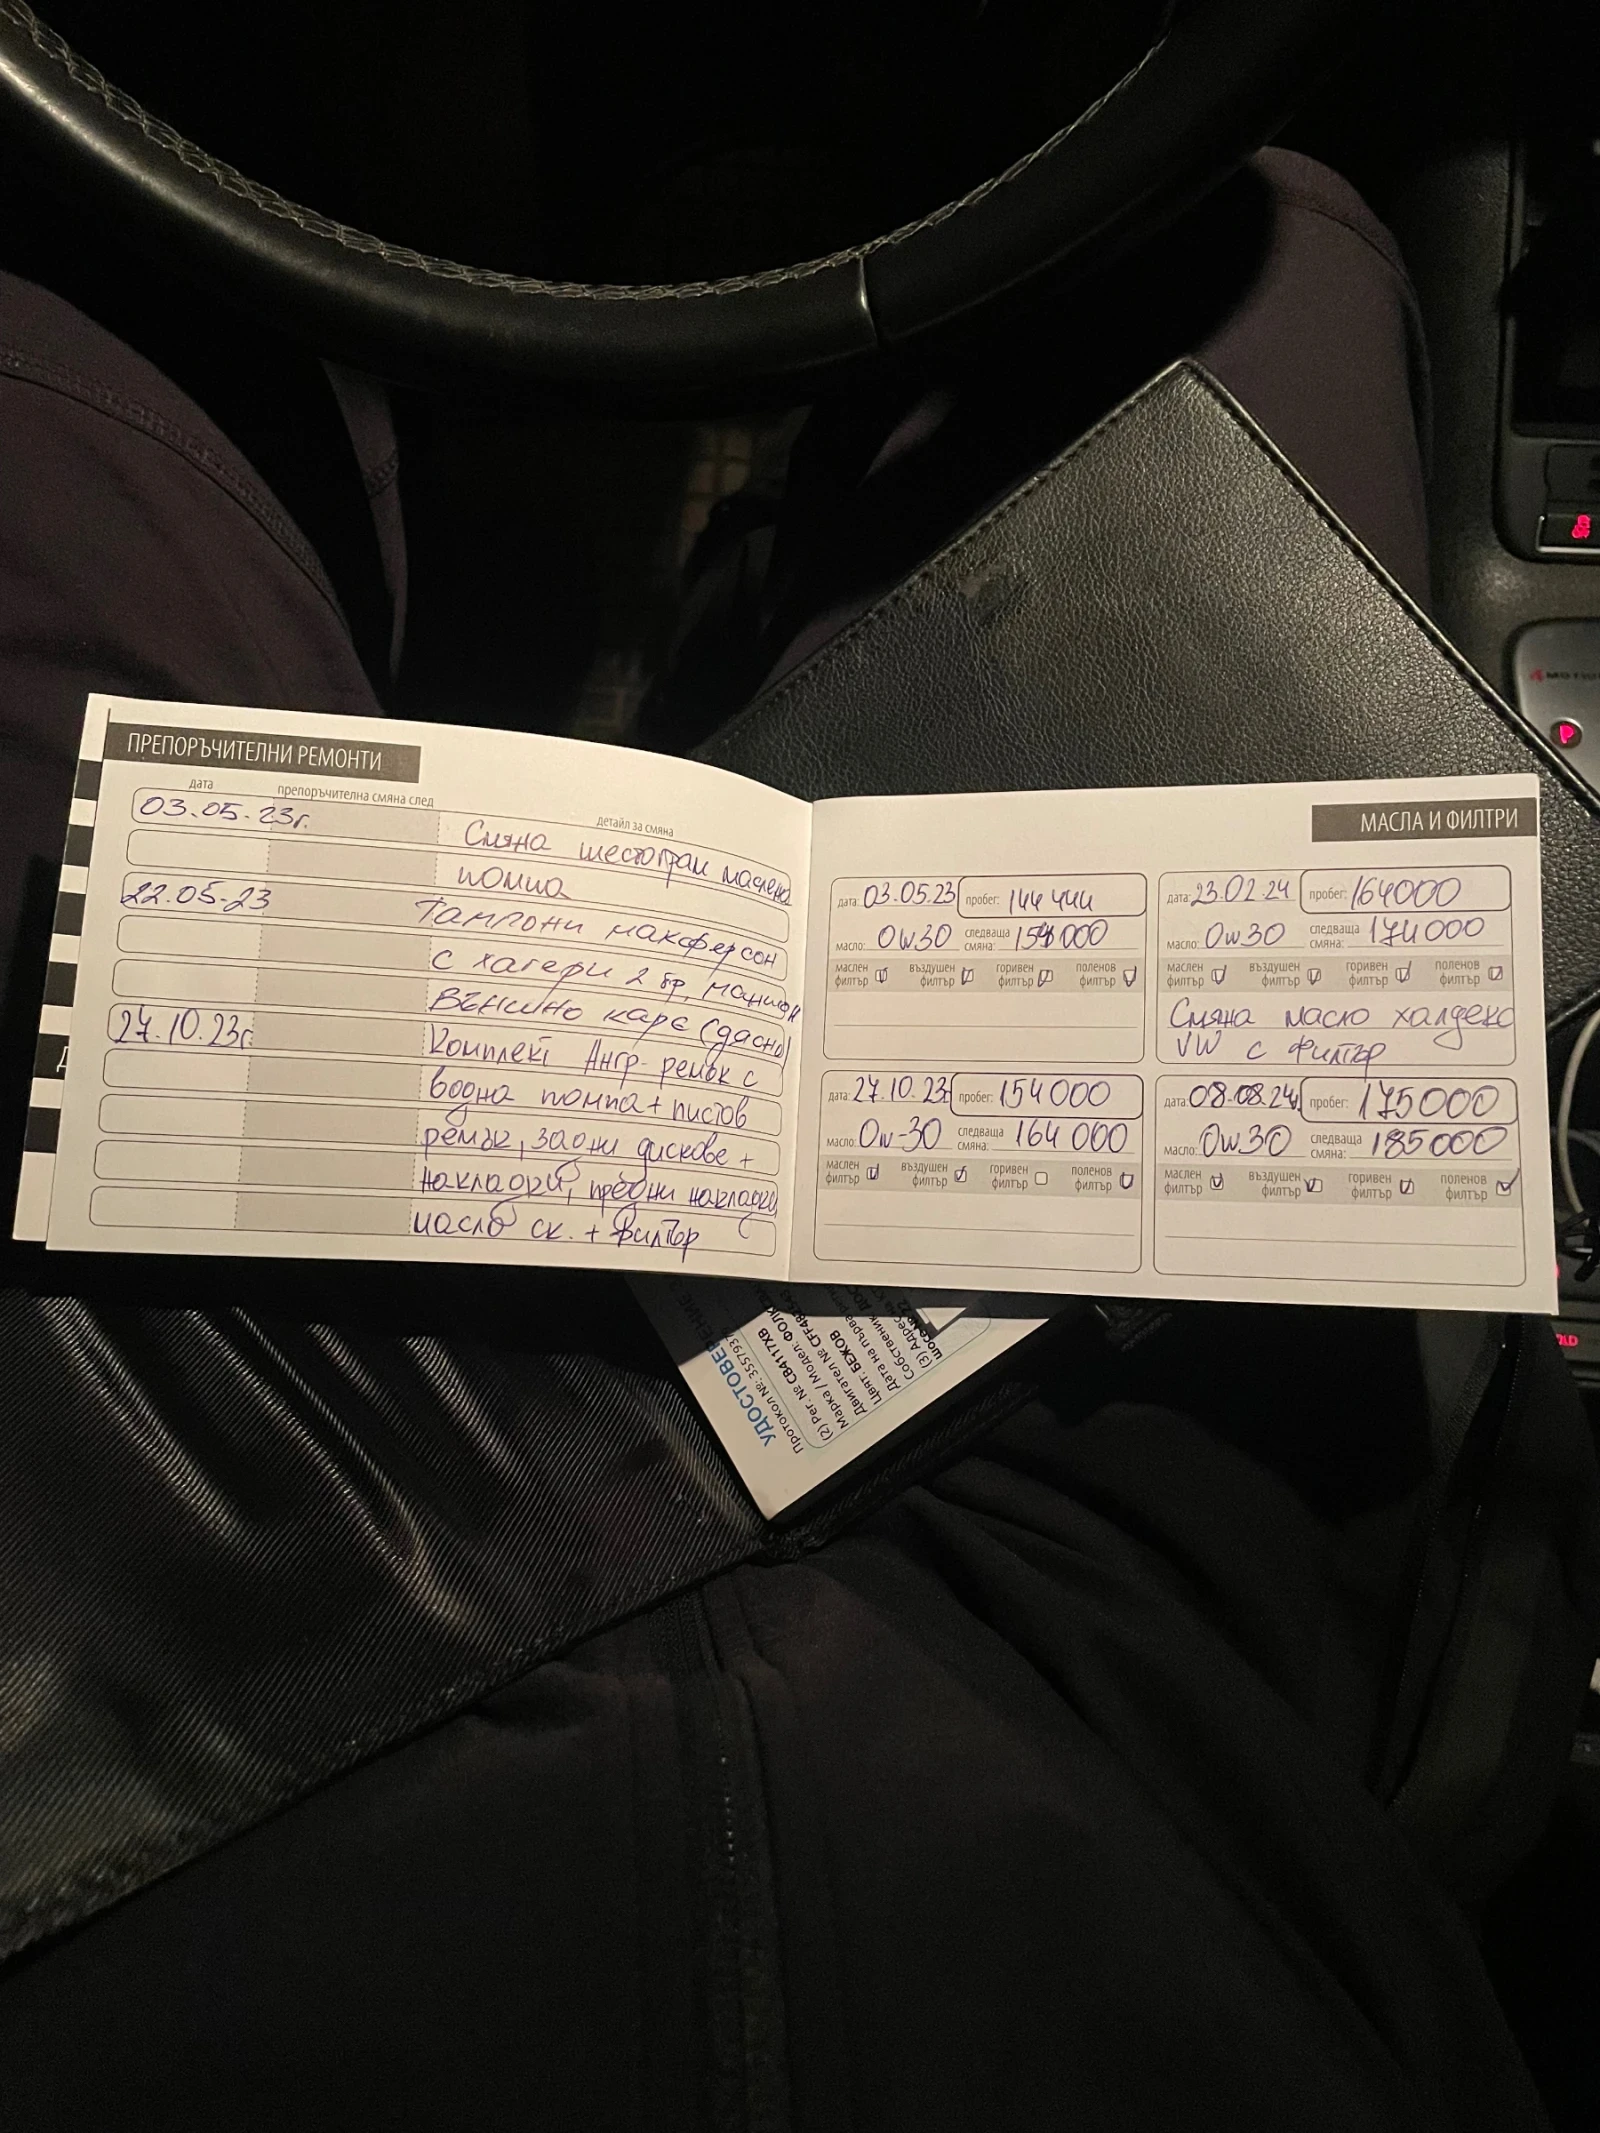 ПРЕПОРЪЧИТЕЛНИ РЕМОНТИ
дата препоръчителна смяна след детайл за смяна
03.05.23г. Смяна шестограм маслена
помпа
22.05.23 Тампони макферсон
с лагери 2 бр,
Външно каре (дясно)
27.10.23г. Комплект Ангр. ремък с
водна помпа + пистов
ремък, задни дискове +
накладки, предни накладки,
масло ск. + филтър
МАСЛА И ФИЛТРИ
дата: 03.05.23 пробег: 144 444
масло: 0w30 следваща смяна: 154000
маслен филтър въздушен филтър горивен филтър поленов филтър
дата: 27.10.23г пробег: 154000
масло: 0w-30 следваща смяна: 164 000
маслен филтър въздушен филтър горивен филтър поленов филтър
дата: 23.02.24 пробег: 164000
масло: 0w30 следваща смяна: 174000
маслен филтър въздушен филтър горивен филтър поленов филтър
Смяна масло халдекс
VW с филтър
дата: 08.08.24г. пробег: 175000
масло: 0w30 следваща смяна: 185000
маслен филтър въздушен филтър горивен филтър поленов филтър
(2) Рег. № CB4117XB
Марка / Модел:
Двигател № CFF
Цвят: БЕЖОВ
Дата на първа
Собственик
(3) Адрес
P